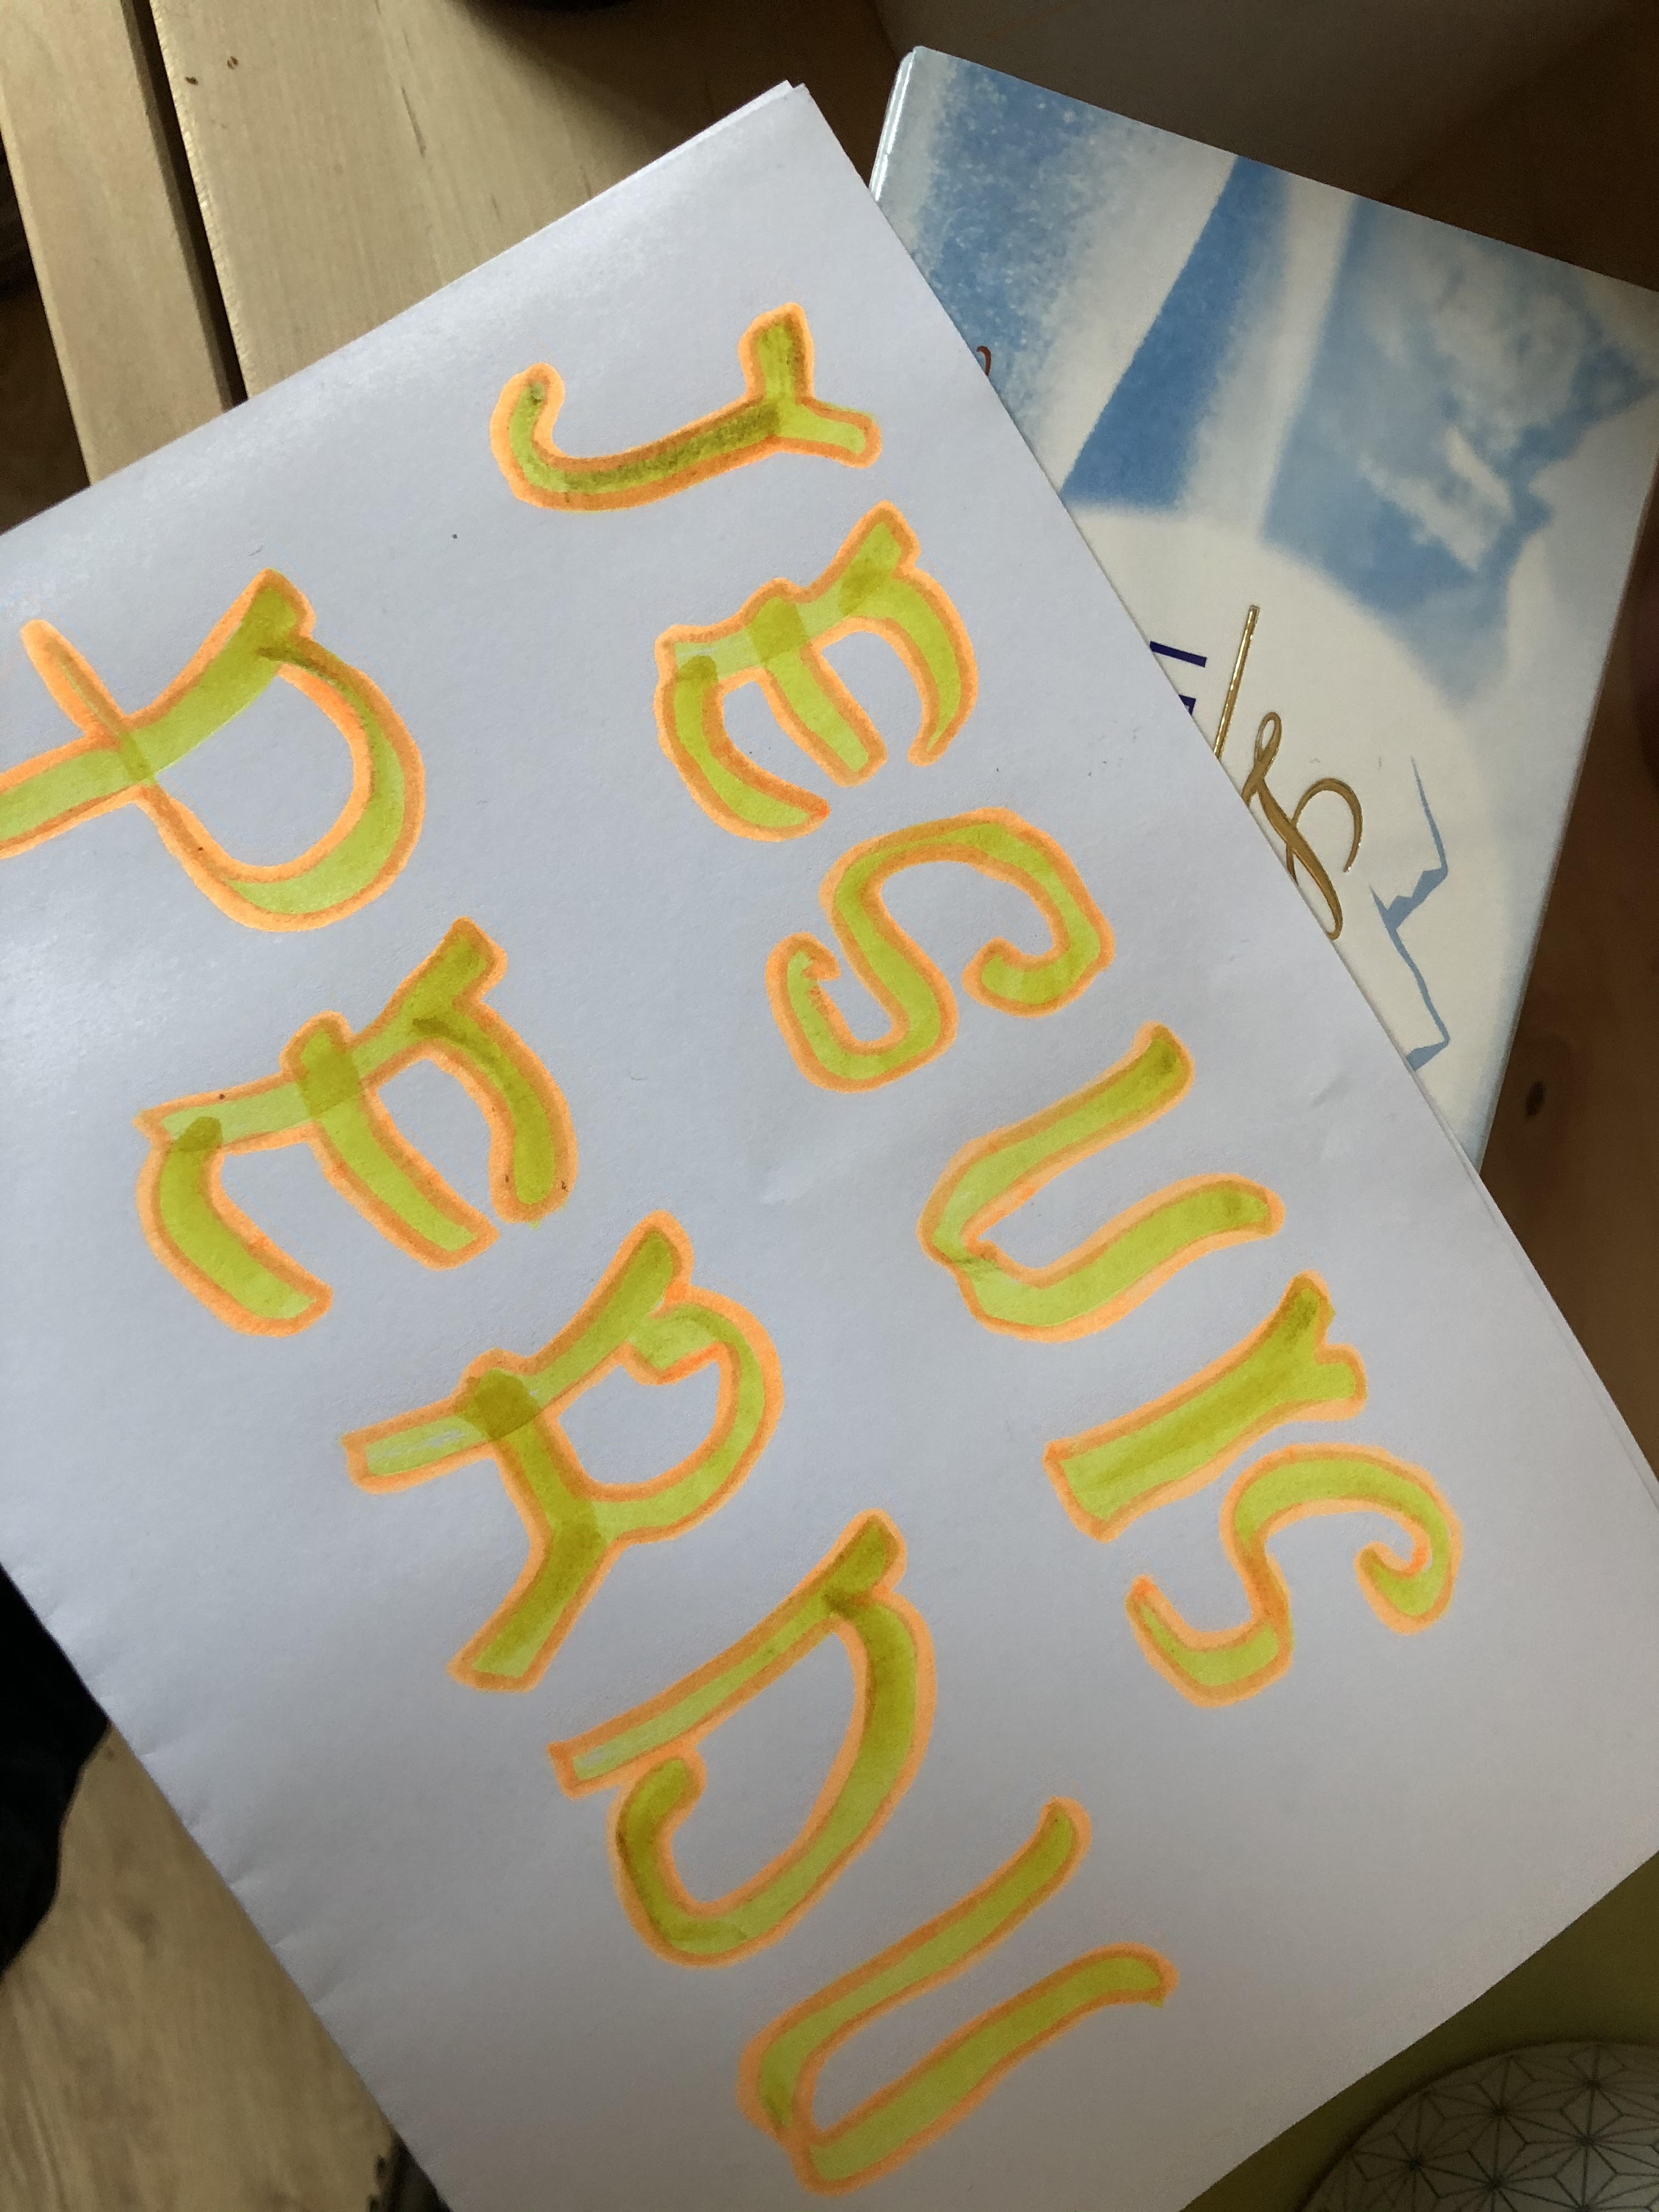 JE SUIS
PERDU